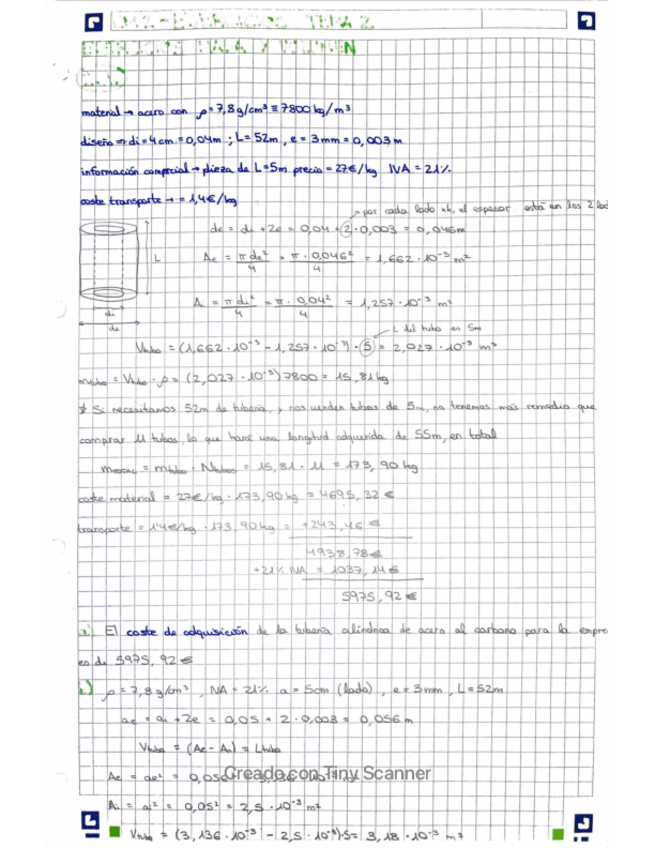 material → acero con ρ = 7,8 g/cm³ ≡ 7800 kg/m³
diseño ⇒ di = 4cm = 0,04m ; L = 52m , e = 3mm = 0,003m
información comercial → pieza de L=5m precio = 27€/kg IVA = 21%
coste transporte → = 1,4€/kg
→ por cada lado xk, el espesor está en los 2
de = di + 2e = 0,04 + 2 · 0,003 = 0,046m
L
Ae = π de² / 4 = π · 0,046² / 4 = 1,662 · 10⁻³ m²
Ai = π di² / 4 = π · 0,04² / 4 = 1,257 · 10⁻³ m²
di
de
L del tubo es 5m
Vtubo = (1,662 · 10⁻³ - 1,257 · 10⁻³) · 5 = 2,027 · 10⁻³ m³
mtubo = Vtubo · ρ = (2,027 · 10⁻³) 7800 = 15,81 kg
* Si necesitamos 52m de tubería, y nos venden tubos de 5m, no tenemos más remedio que
comprar 11 tubos, lo que hará una longitud adquirida de 55m, en total
mTOTAL = mtubo · Ntubos = 15,81 · 11 = 173,90 kg
coste material = 27€/kg · 173,90 kg = 4695,32 €
transporte = 1'4€/kg · 173,90 kg = +243,46 €
4938,78€
+21% IVA = 1037,14€
5975,92€
El coste de adquisición de la tubería cilíndrica de acero al carbono para la empre
es de 5975,92€
ρ = 7,8 g/cm³ , IVA = 21% a = 5cm (lado) , e = 3mm , L = 52m
ae = ai + 2e = 0,05 + 2 · 0,003 = 0,056m
Vtubo = (Ae - Ai) = Ltubo
Ae = ae² = 0,056
Creado con Tiny Scanner
Ai = ai² = 0,05² = 2,5 · 10⁻³ m²
Vtubo = (3,136 · 10⁻³ - 2,5 · 10⁻³) · 5 = 3,18 · 10⁻³ m³